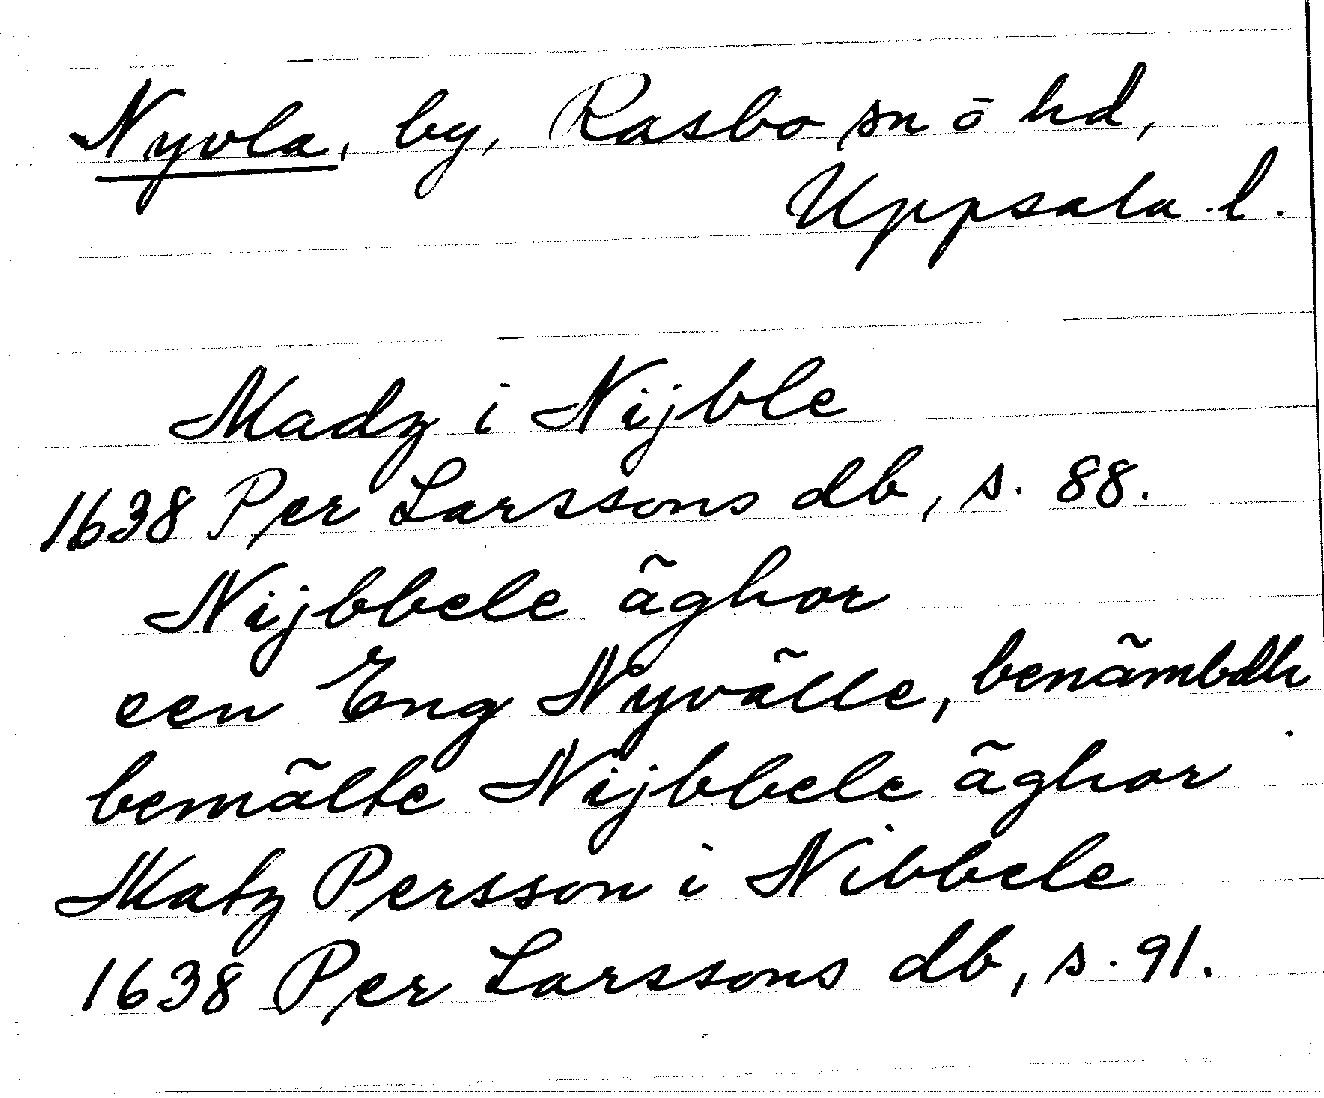 Nyvla, by, Rasbo sn o hd,
Uppsala l.
Madz i Nijble
1638 Per Larssons db, s. 88.
Nijbbele ãghor
een Eng Nyvãlle, benãmbdh
bemãlte Nijbbele ãghor
Matz Persson i Nibbele
1638 Per Larssons db, s. 91.